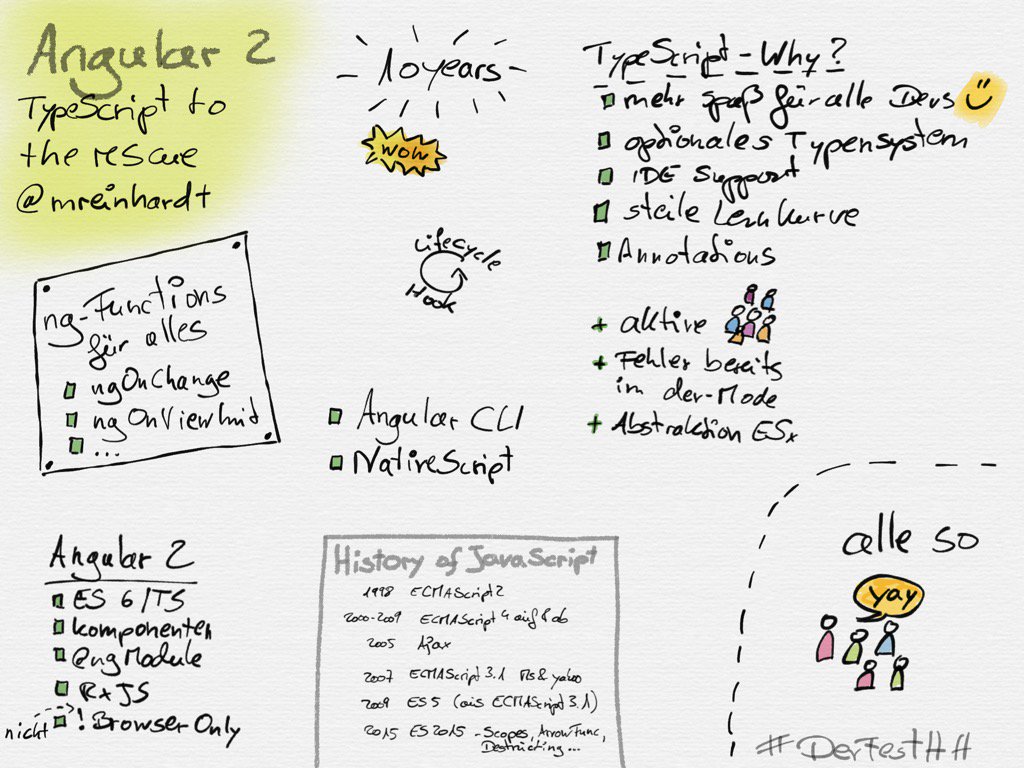 Angular 2
TypeScript to
the rescue
@mreinhardt
10 years
wow
TypeScript - Why?
mehr Spaß für alle Devs
optionales Typensystem
IDE Support
steile Lernkurve
Annotations
+ aktive
+ Fehler bereits
im dev-Mode
+ Abstraktion ESx
Lifecycle
Hook
ng-Functions
für alles
ngOnChange
ngOnViewInit
...
Angular CLI
NativeScript
Angular 2
ES 6/TS
Komponenten
@ngModule
RxJS
nicht
! Browser Only
History of JavaScript
1998 ECMAScript 2
2000-2009 ECMAScript 4 auf & ab
2005 Ajax
2007 ECMAScript 3.1 MS & yahoo
2009 ES 5 (aus ECMAScript 3.1)
2015 ES 2015 - Scopes, ArrowFunc,
Destructing ...
alle so
yay
#DevFestHH